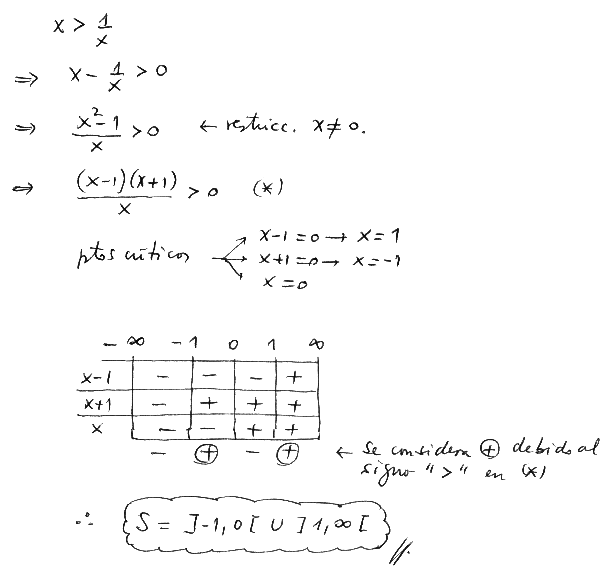 x > 1/x
⇒ x - 1/x > 0
⇒ (x²-1)/x > 0 ← restricc. x ≠ 0.
⇔ (x-1)(x+1)/x > 0 (*)
ptos críticos → x-1=0 → x=1
→ x+1=0 → x=-1
→ x=0
-∞ -1 0 1 ∞
x-1 - - - +
x+1 - + + +
x - - + +
- ⊕ - ⊕ ← Se considera ⊕ debido al
signo ">" en (*)
∴ S = ]-1,0[ ∪ ]1,∞[